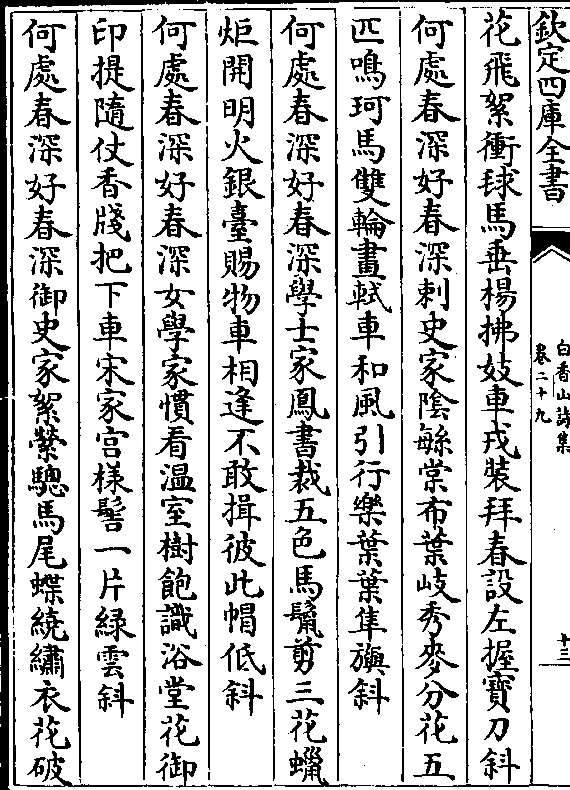 欽定四庫全書
白香山詩集
卷二十九
十三
花飛絮衝毬馬垂楊拂妓車戎裝拜春設左握寶刀斜
何處春深好春深刺史家陰繇棠布葉岐秀麥分花五
匹鳴珂馬雙輪畫軾車和風引行樂葉葉隼旟斜
何處春深好春深學士家鳳書裁五色馬鬣剪三花蠟
炬開明火銀臺賜物車相逢不敢揖彼此帽低斜
何處春深好春深女學家慣看温室樹飽識浴堂花御
印提隨仗香牋把下車宋家宫様髻一片緑雲斜
何處春深好春深御史家絮縈驄馬尾蝶繞繡衣花破